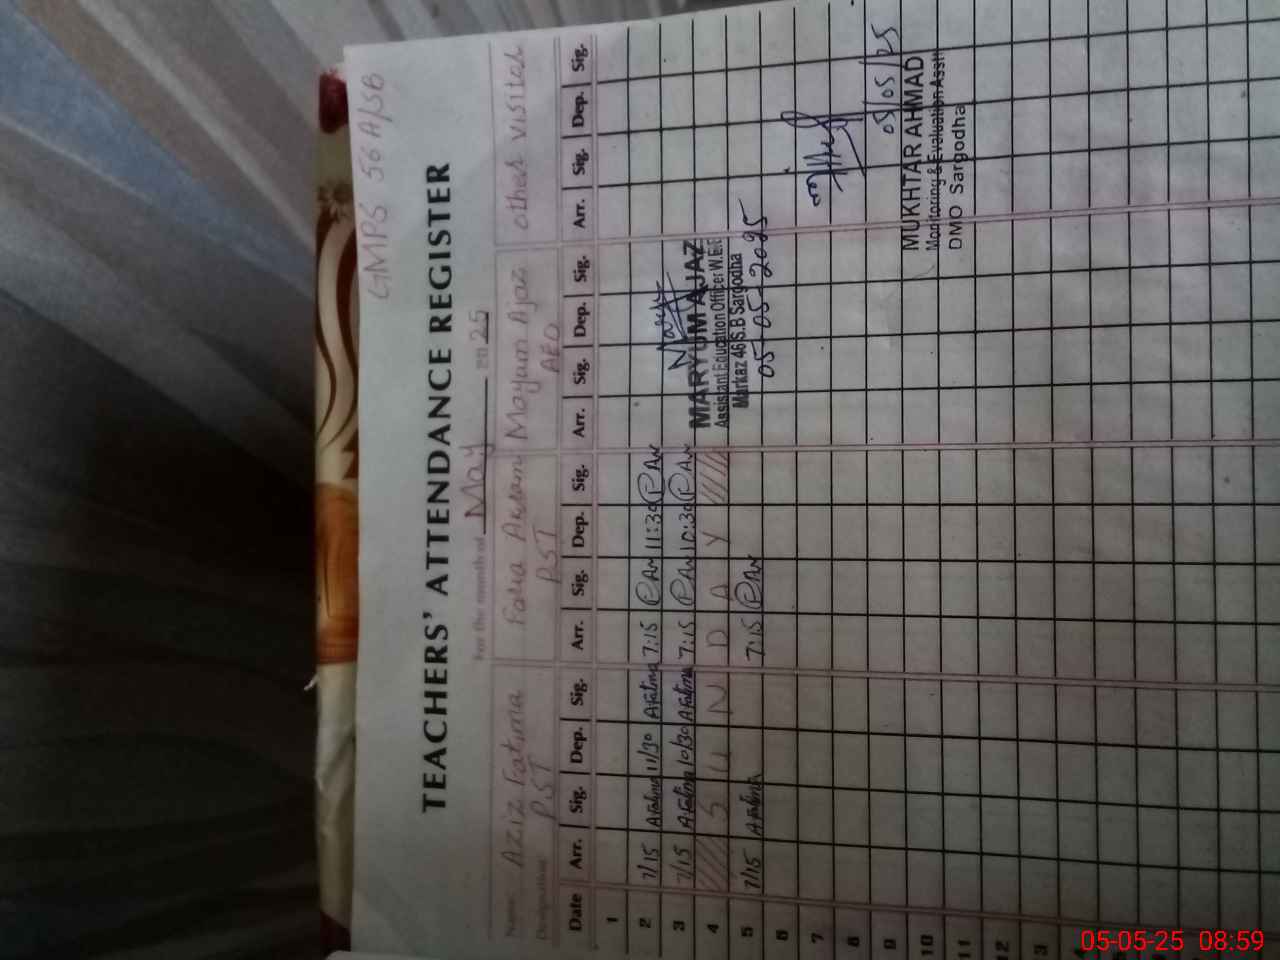 GMPS 56 A/SB
TEACHERS' ATTENDANCE REGISTER
For the month of May 2025
Name: Aziz Fatima Akram Mayam Ajaz other visitor
Designation: PST PST AEO
Date Arr. Sig. Dep. Sig. Arr. Sig. Dep. Sig. Arr. Sig. Dep. Sig. Arr. Sig. Dep. Sig.
1
2 7/15 AFatima 11/30 AFatima 7:15 11:30
3 7/15 AFatima 10/30 AFatima 7:15 10:30
4 S U N D A Y
5 7/15 AFatima 7:15
MARYUM AJAZ
Assistant Education Officer W.E.E
Markaz 46 S.B Sargodha
05-05-2025
6
7
8
9
05/05/25
MUKHTAR AHMAD
Monitoring & Evaluation Asstt
DMO Sargodha
10
11
12
3
05-05-25 08:59